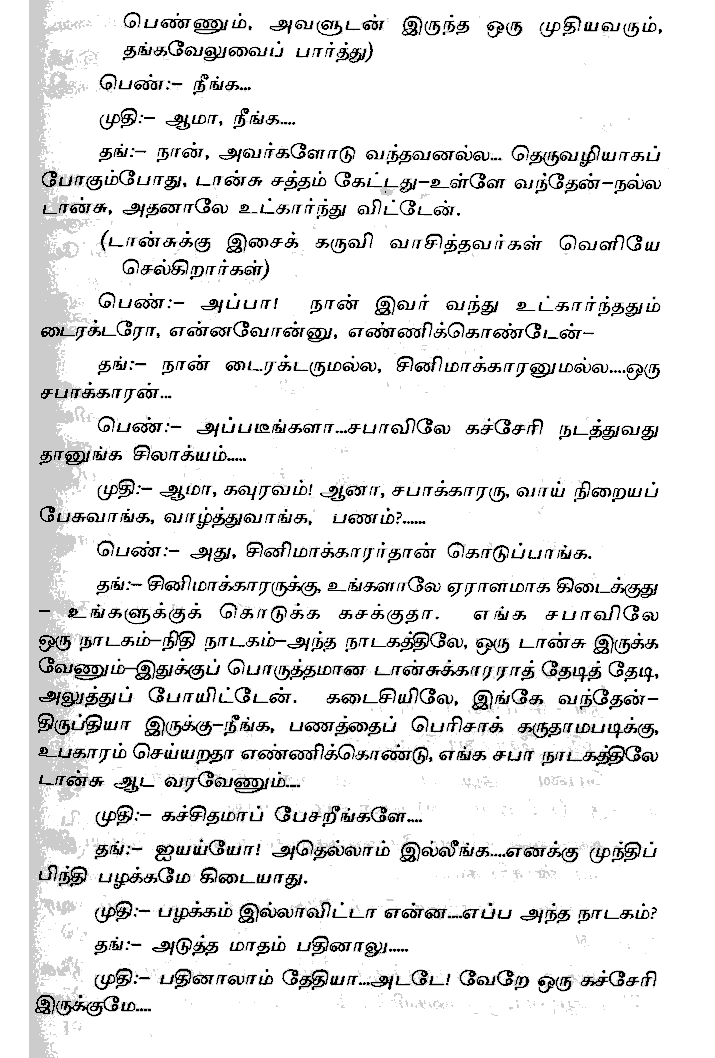 பெண்ணும், அவளுடன் இருந்த ஒரு முதியவரும்,
தங்கவேலுவைப் பார்த்து)
பெண்:– நீங்க...
முதி:– ஆமா, நீங்க....
தங்:– நான், அவர்களோடு வந்தவனல்ல... தெருவழியாகப்
போகும்போது, டான்சு சத்தம் கேட்டது–உள்ளே வந்தேன்–நல்ல
டான்சு, அதனாலே உட்கார்ந்து விட்டேன்.
(டான்சுக்கு இசைக் கருவி வாசித்தவர்கள் வெளியே
செல்கிறார்கள்)
பெண்:– அப்பா! நான் இவர் வந்து உட்கார்ந்ததும்
டைரக்டரோ, என்னவோன்னு, எண்ணிக்கொண்டேன்–
தங்:– நான் டைரக்டருமல்ல, சினிமாக்காரனுமல்ல....ஒரு
சபாக்காரன்...
பெண்:– அப்படீங்களா...சபாவிலே கச்சேரி நடத்துவது
தானுங்க சிலாக்யம்.....
முதி:– ஆமா, கவுரவம்! ஆனா, சபாக்காரரு, வாய் நிறையப்
பேசுவாங்க, வாழ்த்துவாங்க, பணம்?......
பெண்:– அது, சினிமாக்காரர்தான் கொடுப்பாங்க.
தங்:– சினிமாக்காரருக்கு, உங்களாலே ஏராளமாக கிடைக்குது
– உங்களுக்குக் கொடுக்க கசக்குதா. எங்க சபாவிலே
ஒரு நாடகம்–நிதி நாடகம்–அந்த நாடகத்திலே, ஒரு டான்சு இருக்க
வேணும்–இதுக்குப் பொருத்தமான டான்சுக்காரராத் தேடித் தேடி,
அலுத்துப் போயிட்டேன். கடைசியிலே, இங்கே வந்தேன்–
திருப்தியா இருக்கு–நீங்க, பணத்தைப் பெரிசாக் கருதாமபடிக்கு,
உபகாரம் செய்யறதா எண்ணிக்கொண்டு, எங்க சபா நாடகத்திலே
டான்சு ஆட வரவேணும்....
முதி:– கச்சிதமாப் பேசறீங்களே....
தங்:– ஐயய்யோ! அதெல்லாம் இல்லீங்க....எனக்கு முந்திப்
பிந்தி பழக்கமே கிடையாது.
முதி:– பழக்கம் இல்லாவிட்டா என்ன....எப்ப அந்த நாடகம்?
தங்:– அடுத்த மாதம் பதினாலு.....
முதி:– பதினாலாம் தேதியா...அடடே! வேறே ஒரு கச்சேரி
இருக்குமே....